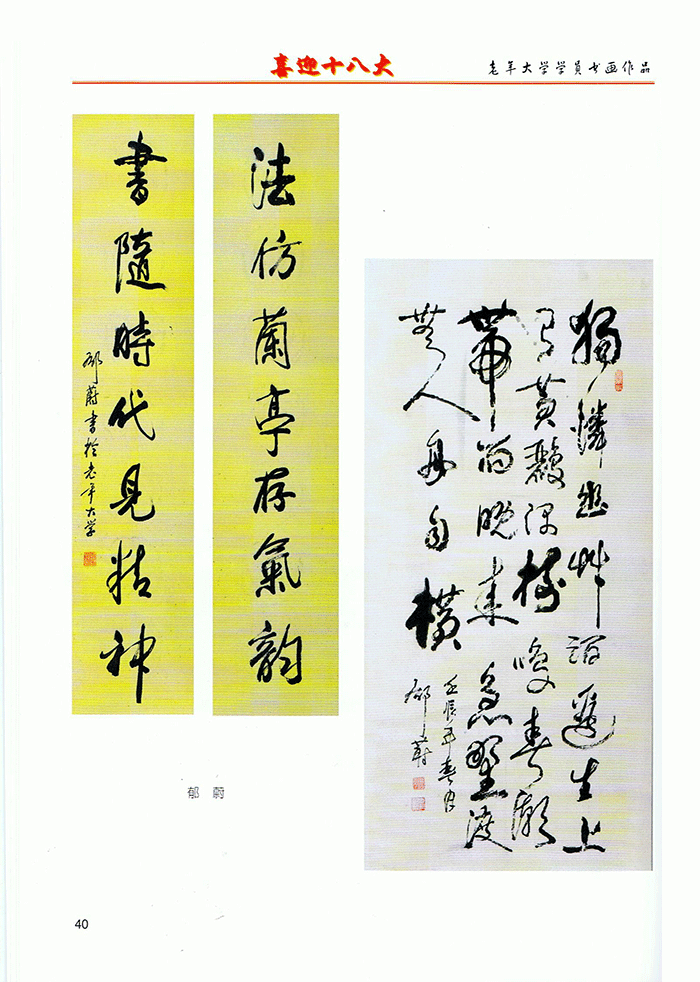 喜迎十八大
老年大学学员书画作品
法仿蘭亭存氣韵
書隨時代見精神
郁蔚書於老年大学
獨憐幽草澗邊生上
有黃鸝深樹鳴春潮
帶雨晚來急野渡
無人舟自橫
壬辰年春月
郁蔚
郁 蔚
40